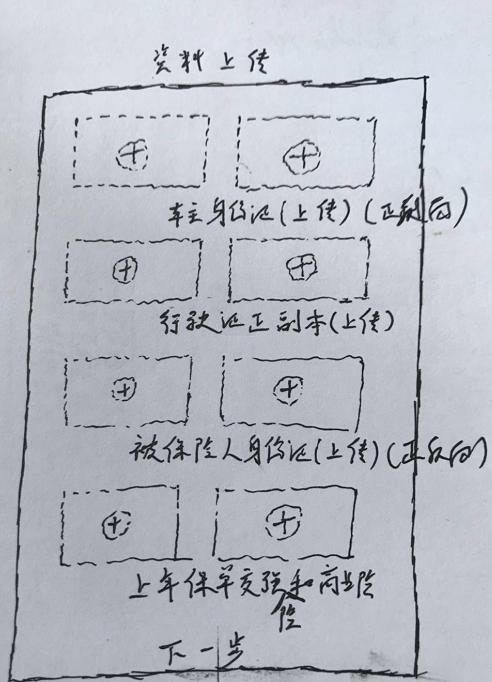 资料上传
车主身份证(上传)(正副面)
行驶证正副本(上传)
被保险人身份证(上传)(正反面)
上年保单交强和商业险
险
下一步